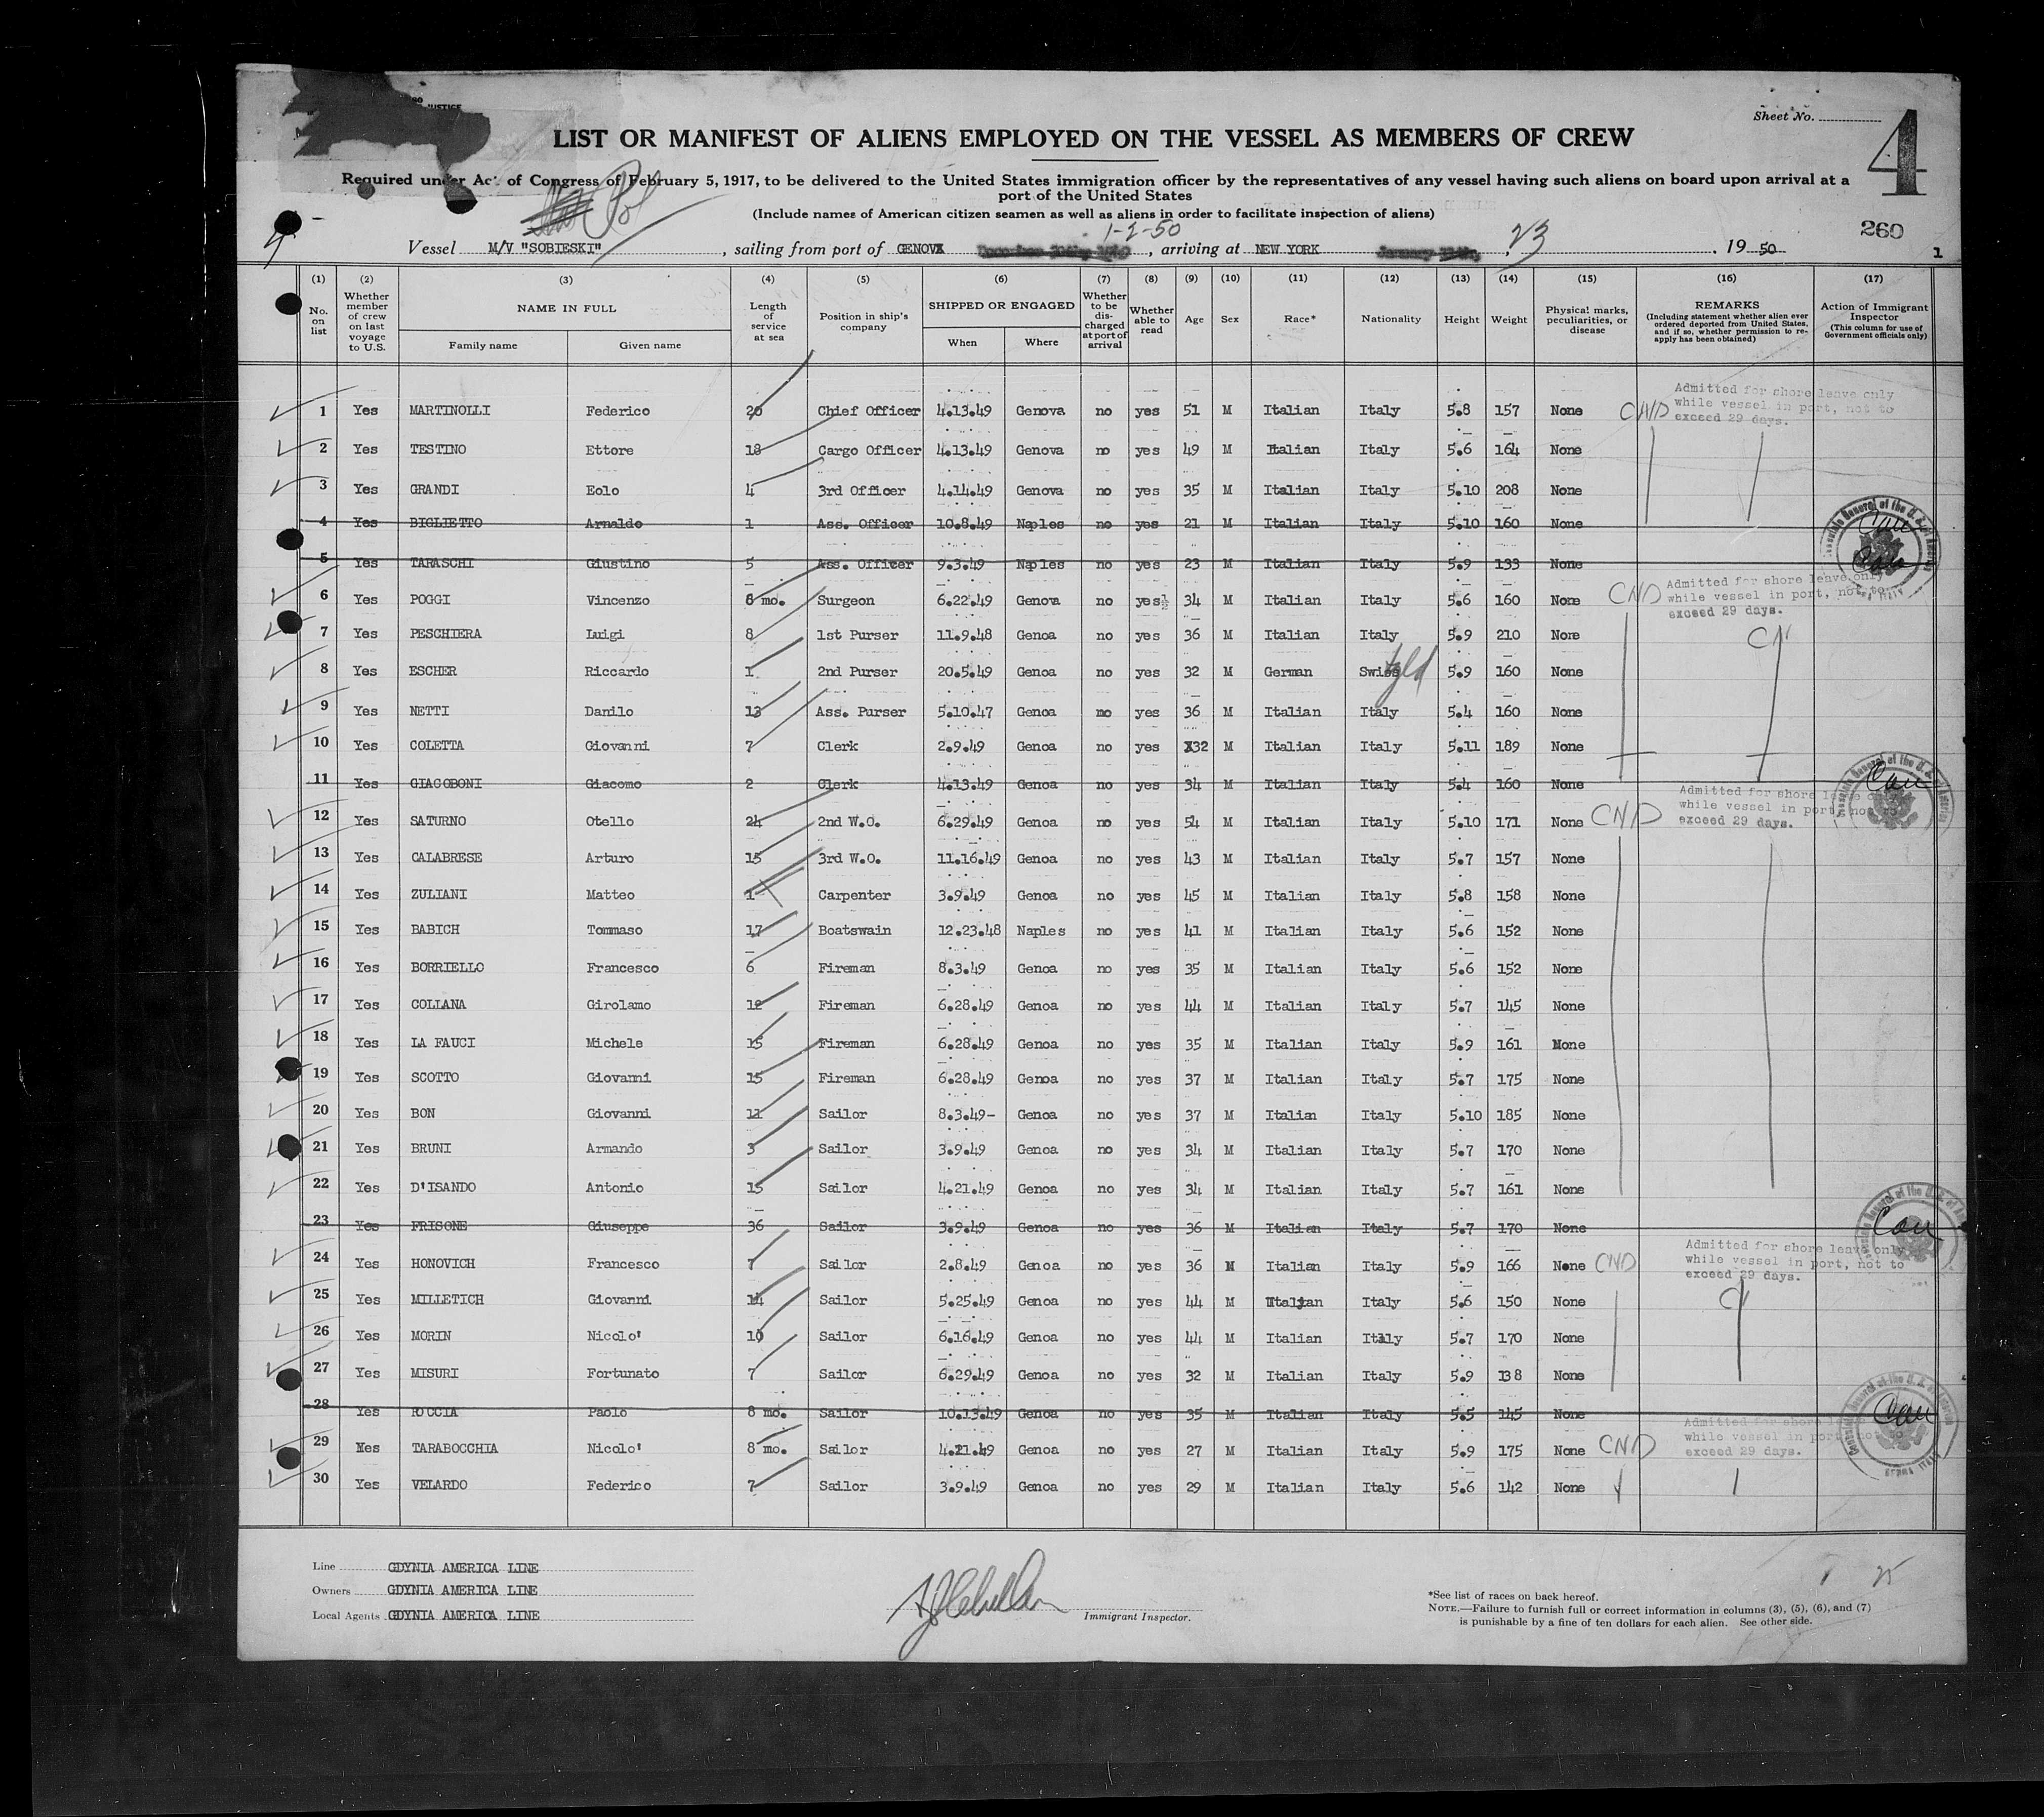 USTICE
Sheet No.
4
LIST OR MANIFEST OF ALIENS EMPLOYED ON THE VESSEL AS MEMBERS OF CREW
Required under Act of Congress of February 5, 1917, to be delivered to the United States immigration officer by the representatives of any vessel having such aliens on board upon arrival at a
port of the United States
(Include names of American citizen seamen as well as aliens in order to facilitate inspection of aliens)
Pol
1-2-50
260
4
Vessel M/V "SOBIESKI", sailing from port of GENOVA, arriving at NEW YORK, 23, 19 50
1
(1) (2) (3) (4) (5) (6) (7) (8) (9) (10) (11) (12) (13) (14) (15) (16) (17)
No. on list
Whether member of crew on last voyage to U.S.
NAME IN FULL
Family name Given name
Length of service at sea
Position in ship's company
SHIPPED OR ENGAGED
When Where
Whether to be discharged at port of arrival
Whether able to read
Age
Sex
Race*
Nationality
Height
Weight
Physical marks, peculiarities, or disease
REMARKS
(Including statement whether alien ever ordered deported from United States, and if so, whether permission to re-apply has been obtained)
Action of Immigrant Inspector
(This column for use of Government officials only)
Admitted for shore leave only
while vessel in port, not to
exceed 29 days.
1 Yes MARTINOLLI Federico 20 Chief Officer 4.13.49 Genova no yes 51 M Italian Italy 5.8 157 None CND
2 Yes TESTINO Ettore 18 Cargo Officer 4.13.49 Genova no yes 49 M Italian Italy 5.6 164 None
3 Yes GRANDI Eolo 4 3rd Officer 4.14.49 Genova no yes 35 M Italian Italy 5.10 208 None
4 Yes BIGLIETTO Arnaldo 1 Ass. Officer 10.8.49 Naples no yes 21 M Italian Italy 5.10 160 None Can
5 Yes TARASCHI Giustino 5 Ass. Officer 9.3.49 Naples no yes 23 M Italian Italy 5.9 133 None Can
Admitted for shore leave only
while vessel in port, not to
exceed 29 days.
6 Yes POGGI Vincenzo 8 mo. Surgeon 6.22.49 Genova no yes 34 M Italian Italy 5.6 160 None CND
7 Yes PESCHIERA Luigi 8 1st Purser 11.9.48 Genoa no yes 36 M Italian Italy 5.9 210 None
8 Yes ESCHER Riccardo 1 2nd Purser 20.5.49 Genoa no yes 32 M German Swiss 5.9 160 None
9 Yes NETTI Danilo 13 Ass. Purser 5.10.47 Genoa no yes 36 M Italian Italy 5.4 160 None
10 Yes COLETTA Giovanni 7 Clerk 2.9.49 Genoa no yes 32 M Italian Italy 5.11 189 None
11 Yes GIACOBONI Giacomo 2 Clerk 4.13.49 Genoa no yes 34 M Italian Italy 5.4 160 None Can
Admitted for shore leave only
while vessel in port, not to
exceed 29 days.
12 Yes SATURNO Otello 24 2nd W.O. 6.29.49 Genoa no yes 54 M Italian Italy 5.10 171 None CND
13 Yes CALABRESE Arturo 15 3rd W.O. 11.16.49 Genoa no yes 43 M Italian Italy 5.7 157 None
14 Yes ZULIANI Matteo 1 Carpenter 3.9.49 Genoa no yes 45 M Italian Italy 5.8 158 None
15 Yes BABICH Tommaso 17 Boatswain 12.23.48 Naples no yes 41 M Italian Italy 5.6 152 None
16 Yes BORRIELLO Francesco 6 Fireman 8.3.49 Genoa no yes 35 M Italian Italy 5.6 152 None
17 Yes COLLANA Girolamo 12 Fireman 6.28.49 Genoa no yes 44 M Italian Italy 5.7 145 None
18 Yes LA FAUCI Michele 15 Fireman 6.28.49 Genoa no yes 35 M Italian Italy 5.9 161 None
19 Yes SCOTTO Giovanni 15 Fireman 6.28.49 Genoa no yes 37 M Italian Italy 5.7 175 None
20 Yes BON Giovanni 11 Sailor 8.3.49- Genoa no yes 37 M Italian Italy 5.10 185 None
21 Yes BRUNI Armando 3 Sailor 3.9.49 Genoa no yes 34 M Italian Italy 5.7 170 None
22 Yes D'ISANDO Antonio 15 Sailor 4.21.49 Genoa no yes 34 M Italian Italy 5.7 161 None
23 Yes FRISONE Giuseppe 36 Sailor 3.9.49 Genoa no yes 36 M Italian Italy 5.7 170 None Can
Admitted for shore leave only
while vessel in port, not to
exceed 29 days.
24 Yes HONOVICH Francesco 7 Sailor 2.8.49 Genoa no yes 36 M Italian Italy 5.9 166 None CND
25 Yes MILLETICH Giovanni 14 Sailor 5.25.49 Genoa no yes 44 M Italian Italy 5.6 150 None
26 Yes MORIN Nicolo' 10 Sailor 6.16.49 Genoa no yes 44 M Italian Italy 5.7 170 None
27 Yes MISURI Fortunato 7 Sailor 6.29.49 Genoa no yes 32 M Italian Italy 5.9 138 None
28 Yes ROCCIA Paolo 8 mo. Sailor 10.13.49 Genoa no yes 35 M Italian Italy 5.5 145 None Can
Admitted for shore leave
while vessel in port, not to
exceed 29 days.
29 Yes TARABOCCHIA Nicolo' 8 mo. Sailor 4.21.49 Genoa no yes 27 M Italian Italy 5.9 175 None CND
30 Yes VELARDO Federico 7 Sailor 3.9.49 Genoa no yes 29 M Italian Italy 5.6 142 None
Line GDYNIA AMERICA LINE
Owners GDYNIA AMERICA LINE
Local Agents GDYNIA AMERICA LINE
Immigrant Inspector.
25
*See list of races on back hereof.
NOTE.—Failure to furnish full or correct information in columns (3), (5), (6), and (7)
is punishable by a fine of ten dollars for each alien. See other side.